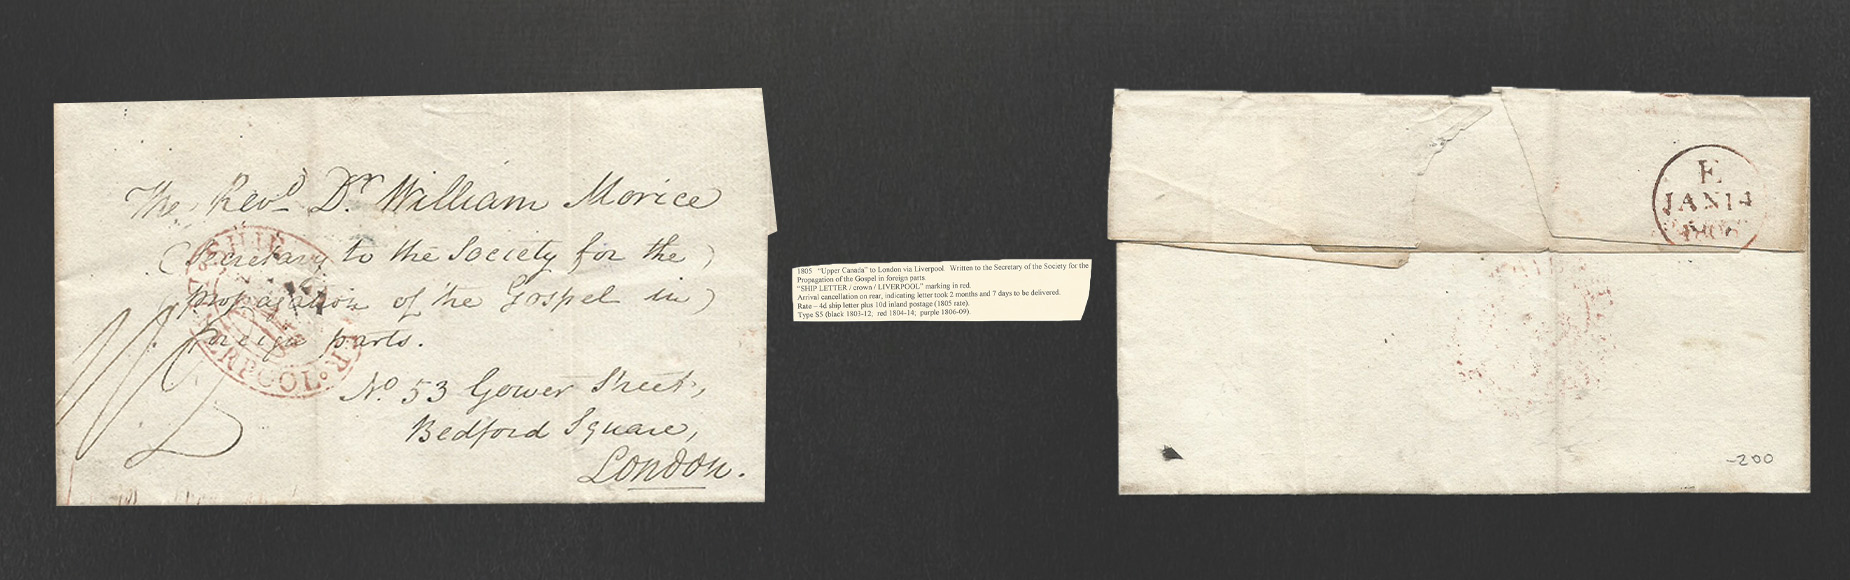 The Revd. Dr. William Morice
(Secretary to the Society for the)
propagation of the Gospel in)
foreign parts.
No. 53 Gower Street,
Bedford Square,
London.
SHIP
LIVERPOOL
1805 "Upper Canada" to London via Liverpool. Written to the Secretary of the Society for the
Propagation of the Gospel in foreign parts.
"SHIP LETTER / crown / LIVERPOOL" marking in red.
Arrival cancellation on rear, indicating letter took 2 months and 7 days to be delivered.
Rate – 4d ship letter plus 10d inland postage (1805 rate).
Type S5 (black 1803-12; red 1804-14; purple 1806-09).
E
JAN 14
1806
-200